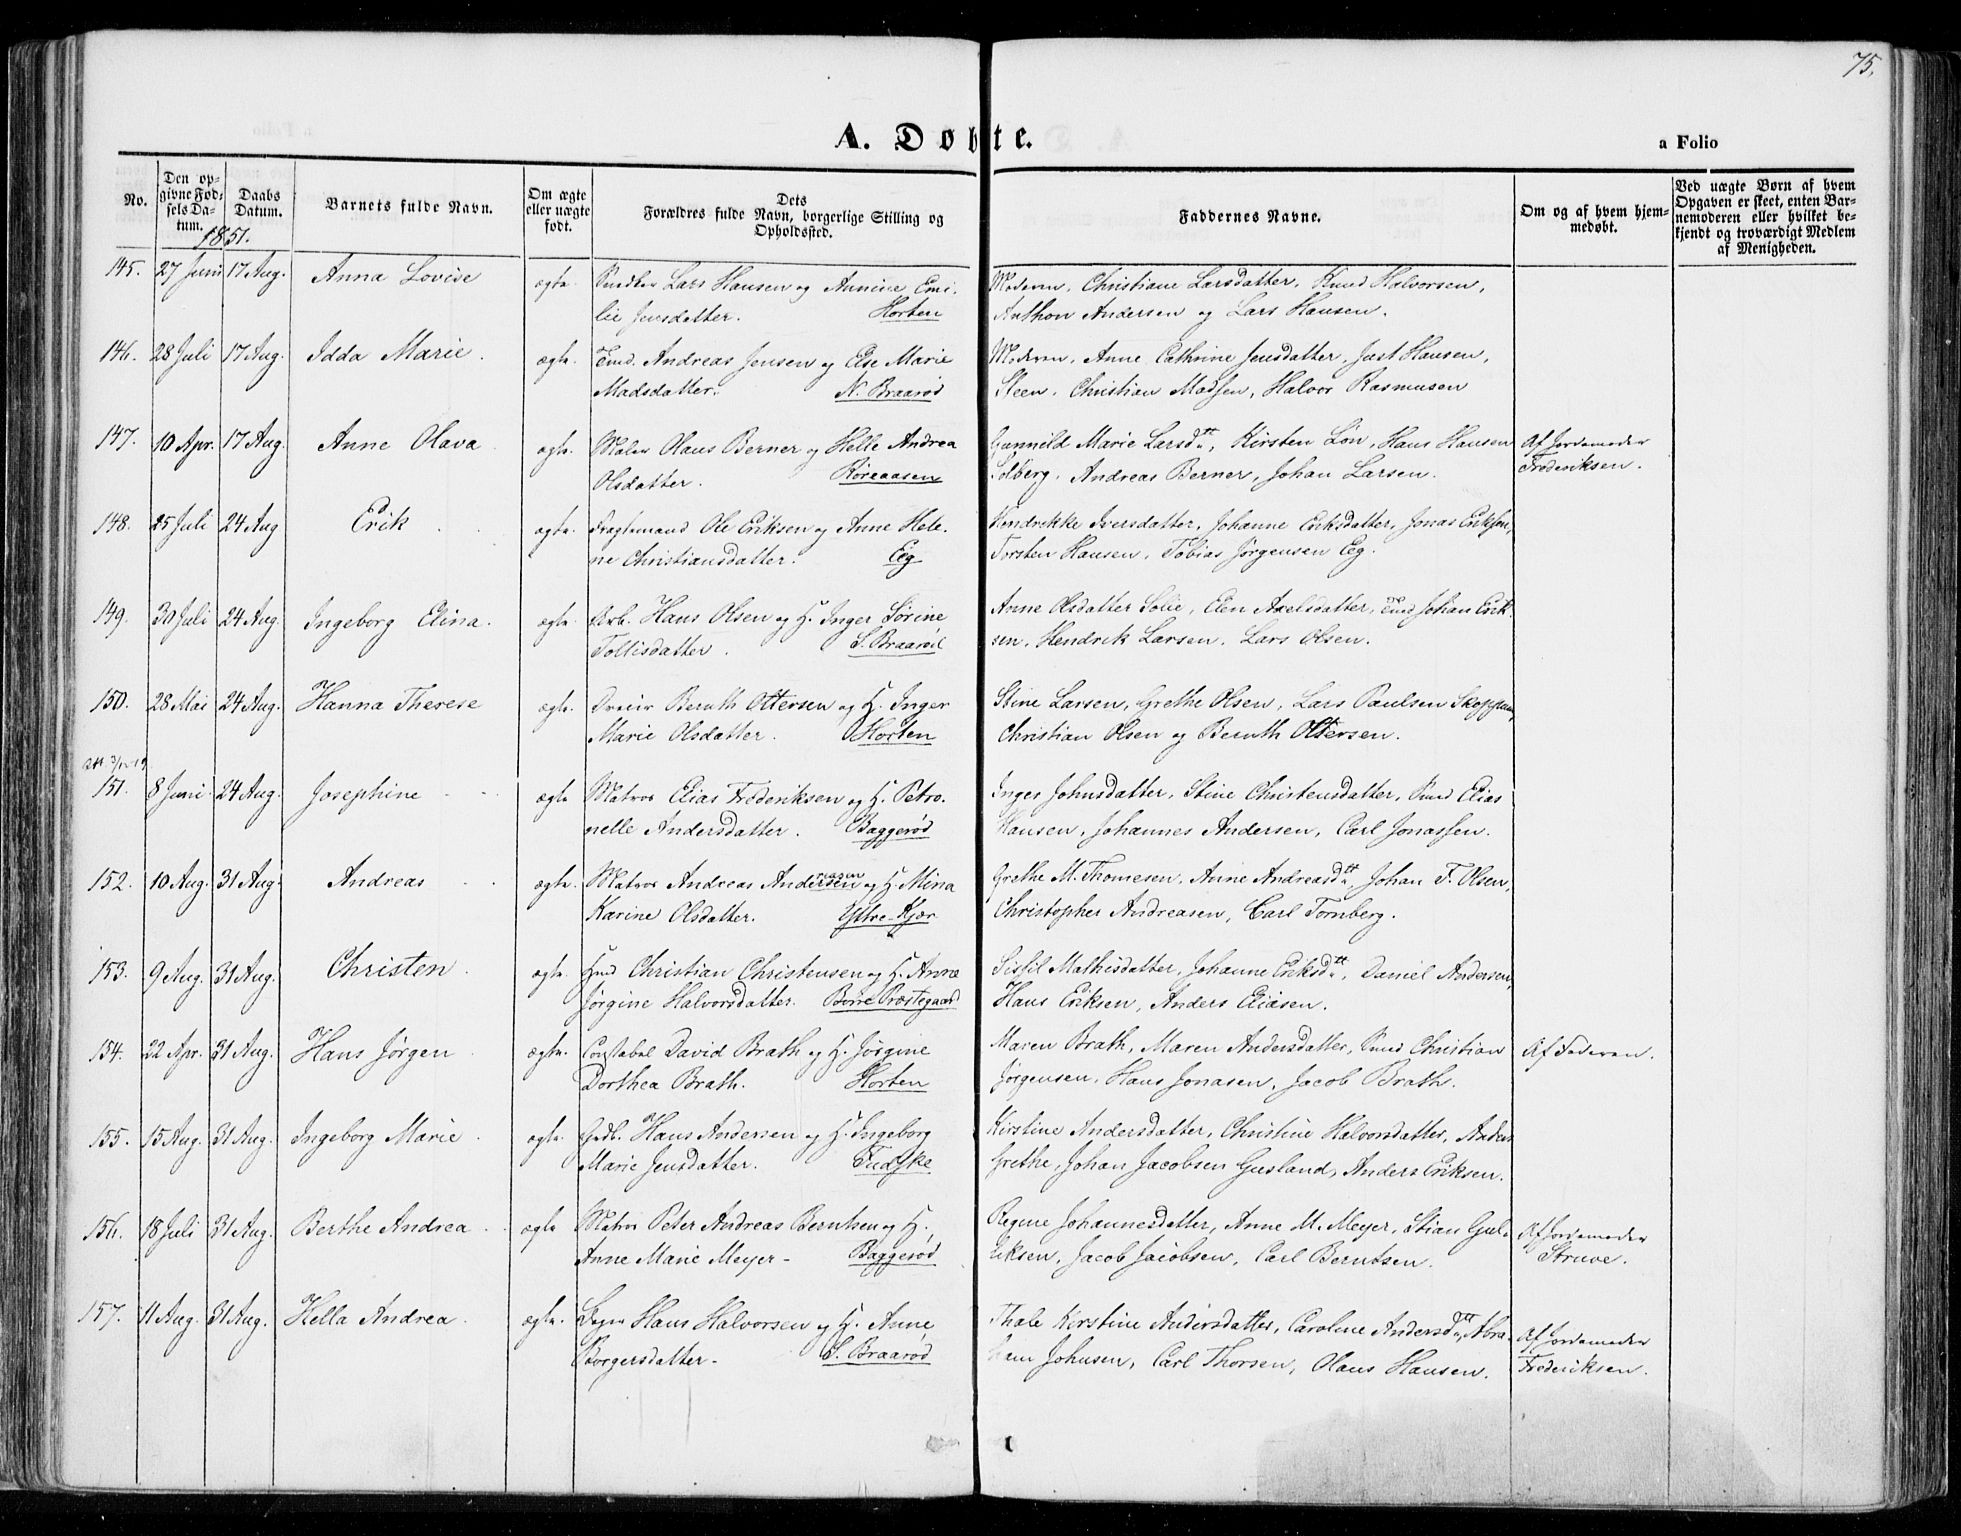 75.
A. Døbte.
a Folio
No.
Den opgivne Fødsels Datum.
Daabs Datum.
Barnets fulde Navn.
Om ægte eller uægte født.
Dets Forældres fulde Navn, borgerlige Stilling og Opholdssted.
Faddernes Navne.
Om og af hvem hjemmedøbt.
Ved uægte Børn af hvem Opgaven er skeet, enten Barnemoderen eller hvilket bekjendt og troværdigt Medlem af Menigheden.
1851.
145. 27 Juni 17 Aug. Anna Lovise ægte. Lars Hansen og Annine Emi- Moderen, Christiane Larsdatter, Knud Halvorsen,
lie Jensdatter. Horten Anthon Andersen og Lars Hansen.
146. 28 Juli 17 Aug. Idda Marie. ægte. Andreas Jensen og Else Marie Moderen, Anne Cathrine Jensdatter, Just Hansen,
Madsdatter. N. Braarød Steen, Christian Madsen, Halvor Rasmusen
147. 10 Apr. 17 Aug. Anne Olava ægte. Maler Olaus Berner og Helle Andrea Gunnild Marie Larsdtt, Kirsten Løn, Hans Hansen Af Jordemoder
Olsdatter. Roraaasen Solberg, Andreas Berner, Johan Larsen. Frederiksen.
148. 25 Juli 24 Aug Erik ægte. Fragtemand Ole Eriksen og Anne Hele- Hendrikke Iversdatter, Johanne Eriksdatter, Jonas Eriksen,
ne Christiansdatter. Eig Torsten Hansen, Tobias Jørgensen Eeg.
149. 30 Juli 24 Aug. Ingeborg Elina. ægte. Arb. Hans Olsen og H. Inger Sørine Anne Olsdatter Solie, Elen Axelsdatter, Johan Erik-
Tollisdatter. S. Braarød sen, Hendrik Larsen, Lars Olsen.
150. 28 Mai 24 Aug. Hanna Therese ægte. Dreier Bernth Ottersen og H. Inger Stine Larsen, Grethe Olsen, Lars Paulsen Skoppum,
Marie Olsdatter. Horten Christian Olsen og Bernth Ottersen.
151. 8 Juni 24 Aug. Josephine ægte Matros Elias Frederiksen og H. Petro- Inger Johnsdatter, Stine Christensdatter, Elias
nelle Andersdatter. Baggerød Hansen, Johannes Andersen, Carl Jonassen.
152. 10 Aug. 31 Aug. Andreas ægte. Matros Andreas Andersen reasen og H. Mina Grethe M. Thomesen, Anne Andreasdtt, Johan F. Olsen,
Karine Olsdatter. Yttre-Kjær Christopher Andreasen, Carl Tornberg.
153. 9 Aug. 31 Aug. Christen ægte. Hmd Christian Christensen og H. Anne Sissil Mathisdatter, Johanne Eriksdtt, Daniel Andersen,
Jørgine Halvorsdatter. Borre Præstegaard Hans Eriksen, Anders Eliasen.
154. 22 Apr. 31 Aug. Hans Jørgen ægte. Constabel David Brath og H. Jørgine Maren Brath, Maren Andersdatter, Christian Af Faderen.
Dorthea Brath. Horten Jørgensen, Hans Jonasen, Jacob Brath.
155. 15 Aug. 31 Aug. Ingeborg Marie ægte. Gdbr. Hans Andersen og H. Ingeborg Kirstine Andersdatter, Christine Halvorsdatter, Anders
Marie Jensdatter. Fudske Grethe, Johan Jacobsen Gusland, Anders Eriksen.
156. 18 Juli 31 Aug. Berthe Andrea ægte Matros Peter Andreas Bernhen og H. Regine Johannesdatter, Anne M. Meyer, Stian Gul- Af Jordemoder
Anne Marie Meyer - Baggerød liksen, Jacob Jacobsen, Carl Berntsen. Struve.
157. 11 Aug. 31 Aug. Hella Andrea ægte. Hans Halvorsen og H. Anne Thale Kirstine Andersdatter, Caroline Andersdtt, Abra- Af Jordemoder
Borgersdatter - S. Braarød ham Johnsen, Carl Thorsen, Olaus Hansen. Frederiksen.